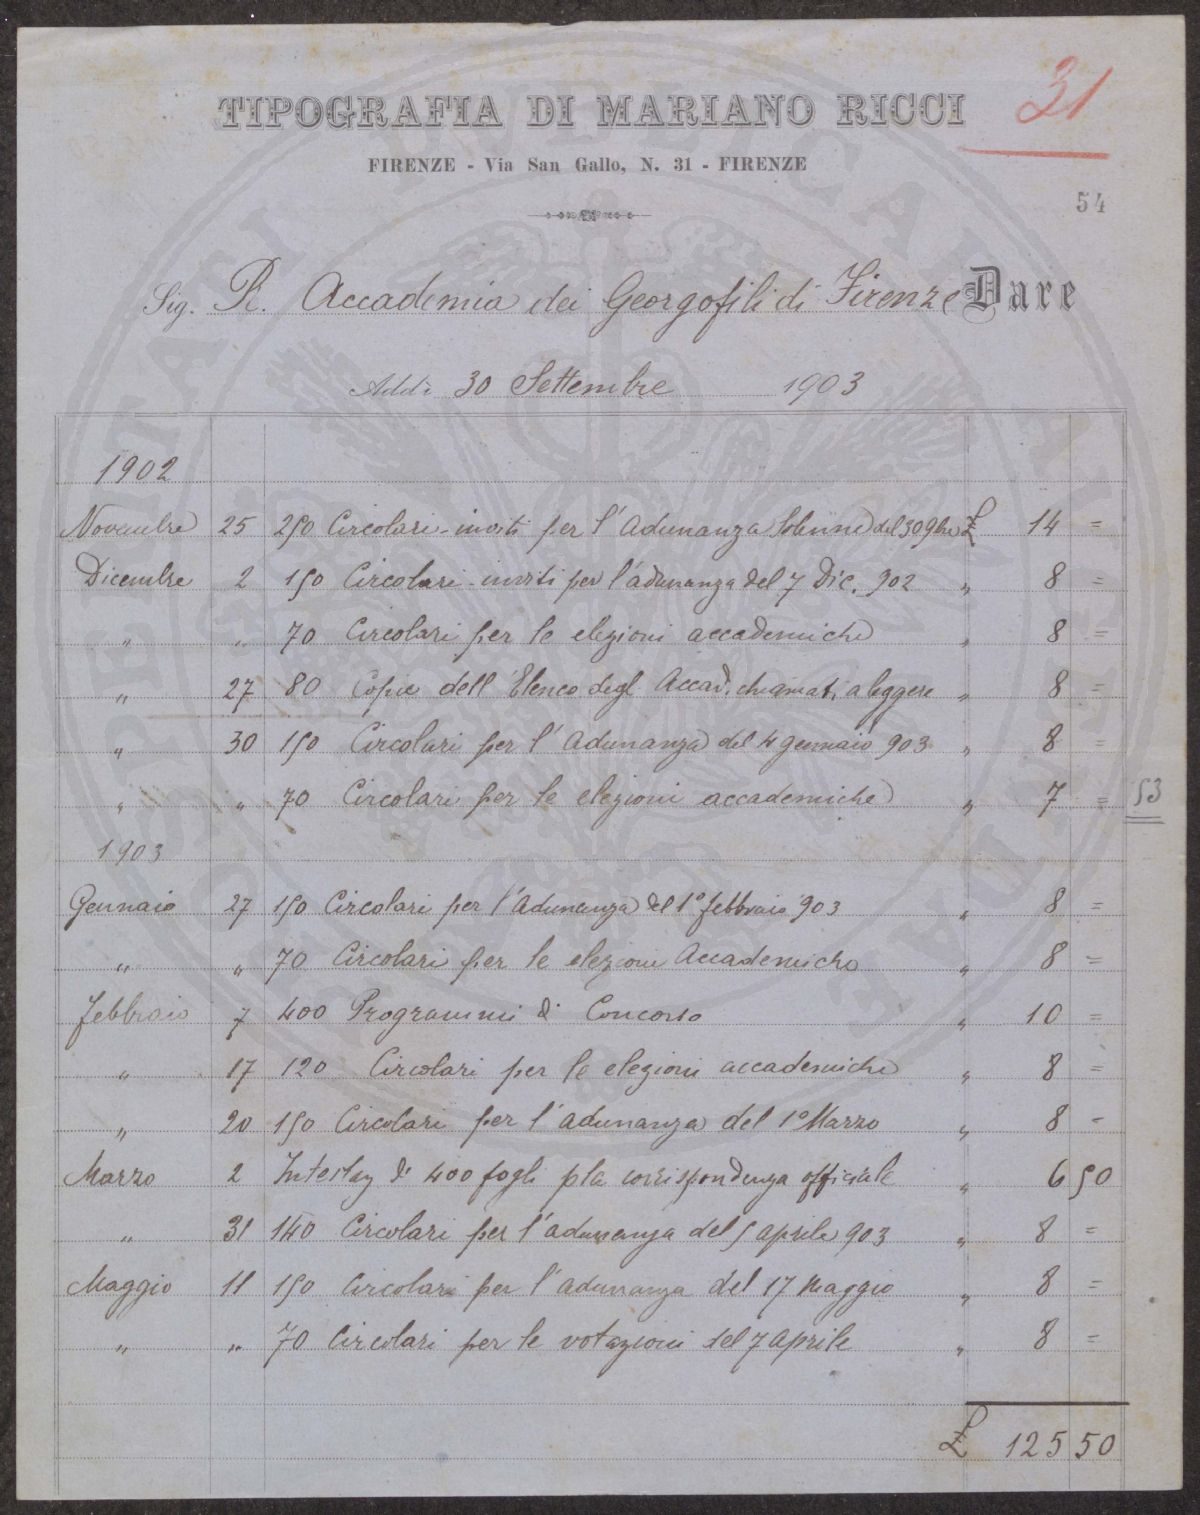 31
TIPOGRAFIA DI MARIANO RICCI
FIRENZE - Via San Gallo, N. 31 - FIRENZE
54
Sig. R. Accademia dei Georgofili di Firenze Dare
Addì 30 Settembre 1903
1902
Novembre 25 250 Circolari-inviti per l'Adunanza Solenne del 30 9bre £ 14 =
Dicembre 2 150 Circolari-inviti per l'adunanza del 7 Dic. 902 " 8 =
" " 70 Circolari per le elezioni accademiche " 8 =
" 27 80 Copie dell'Elenco degl Accad. chiamati a leggere " 8 =
" 30 150 Circolari per l'Adunanza del 4 gennaio 903 " 8 =
" " 70 Circolari per le elezioni accademiche " 7 = 53
1903
Gennaio 27 150 Circolari per l'Adunanza del 1° febbraio 903 " 8 =
" " 70 Circolari per le elezioni Accademiche " 8 =
Febbraio 7 400 Programmi di Concorso " 10 =
" 17 120 Circolari per le elezioni accademiche " 8 =
" 20 150 Circolari per l'adunanza del 1° Marzo " 8 -
Marzo 2 Intestaz di 400 fogli p la corrispondenza officiale " 6 50
" 31 140 Circolari per l'adunanza del 5 aprile 903 " 8 =
Maggio 11 150 Circolari per l'adunanza del 17 Maggio " 8 =
" " 70 Circolari per le votazioni del 7 Aprile " 8 =
£ 125 50